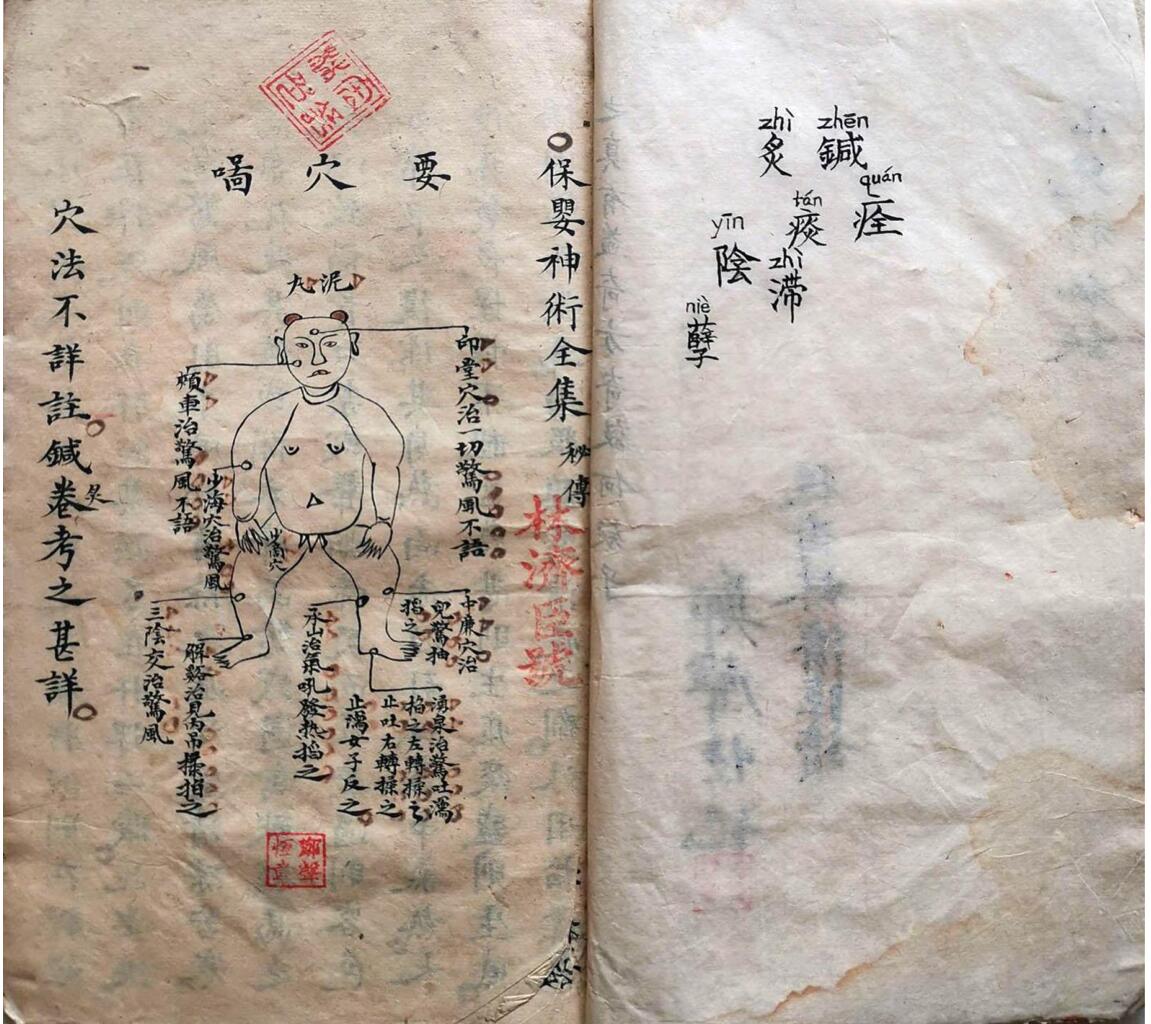 zhēn
鍼
zhì
炙
quán
痊
tán
痰
zhì
滯
yīn
陰
niè
孽
保嬰神術全集秘傳
林濟臣號
要穴啚
泥丸
印堂穴治一切驚風不語
頰車治驚風不語
少海穴治驚風
中廉穴治
兒驚抽
掐之
湧泉治驚吐瀉
掐之左轉揉之
止吐右轉揉之
止瀉女子反之
承山治氣吼發热掐之
解谿治見丙吊揉掐之
三陰交治驚風
穴法不詳註鍼炙卷考之甚詳
鄭聲